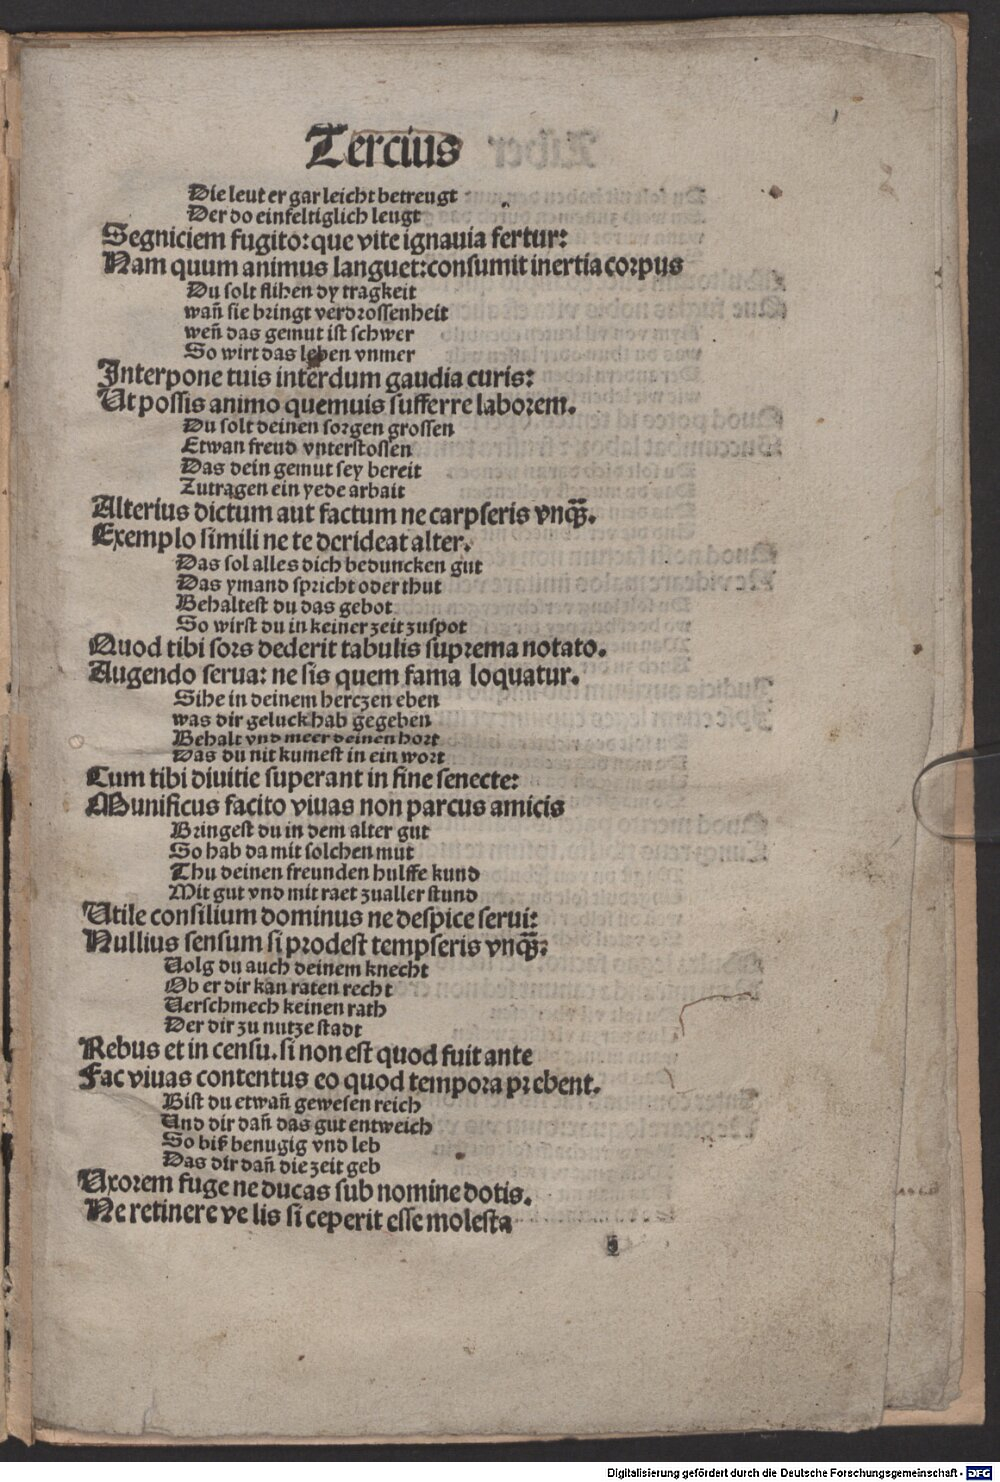 Tercius
Die leut er gar leicht betreugt
Der do einfeltiglich leugt
Segniciem fugito: que vite ignauia fertur:
Nam quum animus languet: consumit inertia corpus
Du solt flihen dy tragkeit
wan̄ sie bringt verdrossenheit
wen̄ das gemut ist schwer
So wirt das leben vnmer
Interpone tuis interdum gaudia curis:
Ut possis animo quemuis sufferre laborem.
Du solt deinen sorgen grossen
Etwan freud vnterstossen
Das dein gemut sey bereit
Zutragen ein yede arbait
Alterius dictum aut factum ne carpseris vnqꝫ̄.
Exemplo simili ne te derideat alter.
Das sol alles dich beduncken gut
Das ymand spricht oder thut
Behaltest du das gebot
So wirst du in keiner zeit zuspot
Quod tibi sors dederit tabulis suprema notato.
Augendo serua: ne sis quem fama loquatur.
Sihe in deinem herczen eben
was dir geluck hab gegeben
Behalt vnd meer deinen hort
Das du nit kumest in ein wort
Cum tibi diuitie superant in fine senecte:
Munificus facito viuas non parcus amicis
Bringest du in dem alter gut
So hab da mit solchen mut
Thu deinen freunden hulffe kund
Mit gut vnd mit raet zualler stund
Utile consilium dominus ne despice serui:
Nullius sensum si prodest tempseris vnqꝫ̄:
Uolg du auch deinem knecht
Ob er dir kan raten recht
Uerschmech keinen rath
Der dir zu nutze stadt
Rebus et in censu. si non est quod fuit ante
Fac viuas contentus eo quod tempora prebent.
Bist du etwan̄ gewesen reich
Und dir dan̄ das gut entweich
So biß benugig vnd leb
Das dir dan̄ die zeit geb
Uxorem fuge ne ducas sub nomine dotis.
Ne retinere velis si ceperit esse molesta
Digitalisierung gefördert durch die Deutsche Forschungsgemeinschaft - DFG